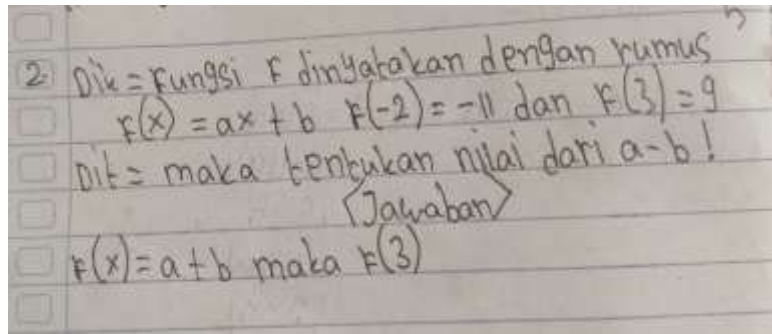 2. Dik = Fungsi F dinyatakan dengan rumus
F(x) = ax + b F(-2) = -11 dan F(3) = 9
Dit = maka tentukan nilai dari a-b!
<Jawaban>
F(x) = a + b maka F(3)